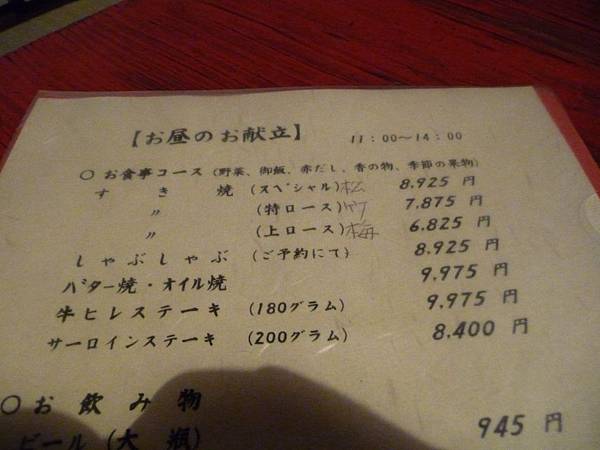 【お昼のお献立】 11:00〜14:00
〇 お食事コース (野菜、御飯、赤だし、香の物、季節の果物)
すき焼 (スペシャル)松 8.925 円
〃 (特ロース)竹 7.875 円
〃 (上ロース)梅 6.825 円
しゃぶしゃぶ (ご予約にて) 8.925 円
バター焼・オイル焼 9.975 円
牛ヒレステーキ (180グラム) 9.975 円
サーロインステーキ (200グラム) 8.400 円
〇 お飲み物
ビール (大瓶) 945 円